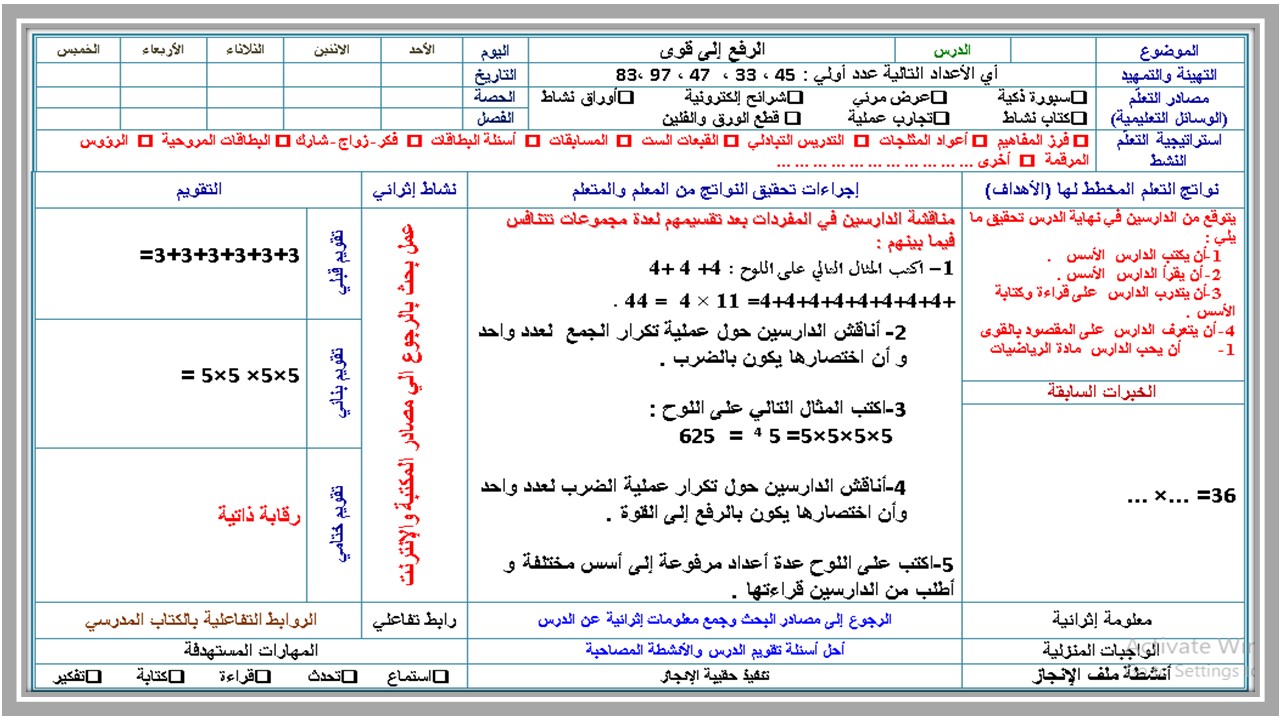 الموضوع الدرس الرفع إلى قوى اليوم الأحد الاثنين الثلاثاء الأربعاء الخميس
التهيئة والتمهيد أي الأعداد التالية عدد أولي : 45 ، 33 ، 47 ، 97 ،83 التاريخ
مصادر التعلّم □سبورة ذكية □عرض مرئي □شرائح إلكترونية □أوراق نشاط الحصة
(الوسائل التعليمية) □كتاب نشاط □تجارب عملية □ قطع الورق والفلين الفصل
استراتيجية التعلّم □ فرز المفاهيم □ أعواد المثلجات □ التدريس التبادلي □ القبعات الست □ المسابقات □ أسئلة البطاقات □ فكر-زواج-شارك □ البطاقات المروحية □ الرؤوس
النشط المرقمة □ أخرى ... ... ... ... ... ... ... ... ... ... ...
نواتج التعلم المخطط لها (الأهداف) إجراءات تحقيق النواتج من المعلم والمتعلم نشاط إثرائي التقويم
يتوقع من الدارسين في نهاية الدرس تحقيق ما
يلي :
1-أن يكتب الدارس الأسس .
2-أن يقرأ الدارس الأسس .
3-أن يتدرب الدارس على قراءة وكتابة
الأسس .
4-أن يتعرف الدارس على المقصود بالقوى
1- أن يحب الدارس مادة الرياضيات
الخبرات السابقة
36= ...× ...
مناقشة الدارسين في المفردات بعد تقسيمهم لعدة مجموعات تتنافس
فيما بينهم :
1– اكتب المثال التالي على اللوح : 4+ 4 +4
+4+4+4+4+4+4+4+4= 11 × 4 = 44 .
2- أناقش الدارسين حول عملية تكرار الجمع لعدد واحد
و أن اختصارها يكون بالضرب .
3-اكتب المثال التالي على اللوح :
5×5×5×5= 5 ⁴ = 625
4-أناقش الدارسين حول تكرار عملية الضرب لعدد واحد
وأن اختصارها يكون بالرفع إلى القوة .
5-اكتب على اللوح عدة أعداد مرفوعة إلى أسس مختلفة و
أطلب من الدارسين قراءتها .
عمل بحث بالرجوع الي مصادر المكتبة والإنترنت
تقويم قبلي
3+3+3+3+3+3=
تقويم بنائي
5×5× 5×5 =
تقويم ختامي
رقابة ذاتية
معلومة إثرائية الرجوع إلى مصادر البحث وجمع معلومات إثرائية عن الدرس رابط تفاعلي الروابط التفاعلية بالكتاب المدرسي
الواجبات المنزلية أحل أسئلة تقويم الدرس والأنشطة المصاحبة المهارات المستهدفة
أنشطة ملف الإنجاز تنفيذ حقيبة الإنجاز □استماع □تحدث □قراءة □كتابة □تفكير
Activate Win
Settings